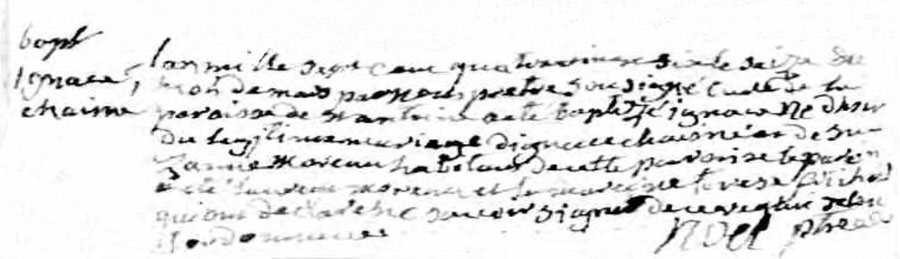 bapt
Ignace
chaine
lan mille sept cent quatre vingt six le seize du
mois de mars par nous pretre sous signé curé de la
paroisse de st antoine a eté baptizé ignace né dhier
du legitime mariage dignace chaisné et de Su
zanne Moreau habitans de cette paroisse le parein
a eté moreau et la mareine terese
qui ont declaré ne savoir signer de ce requi selon
lordonnance
Noel ptre